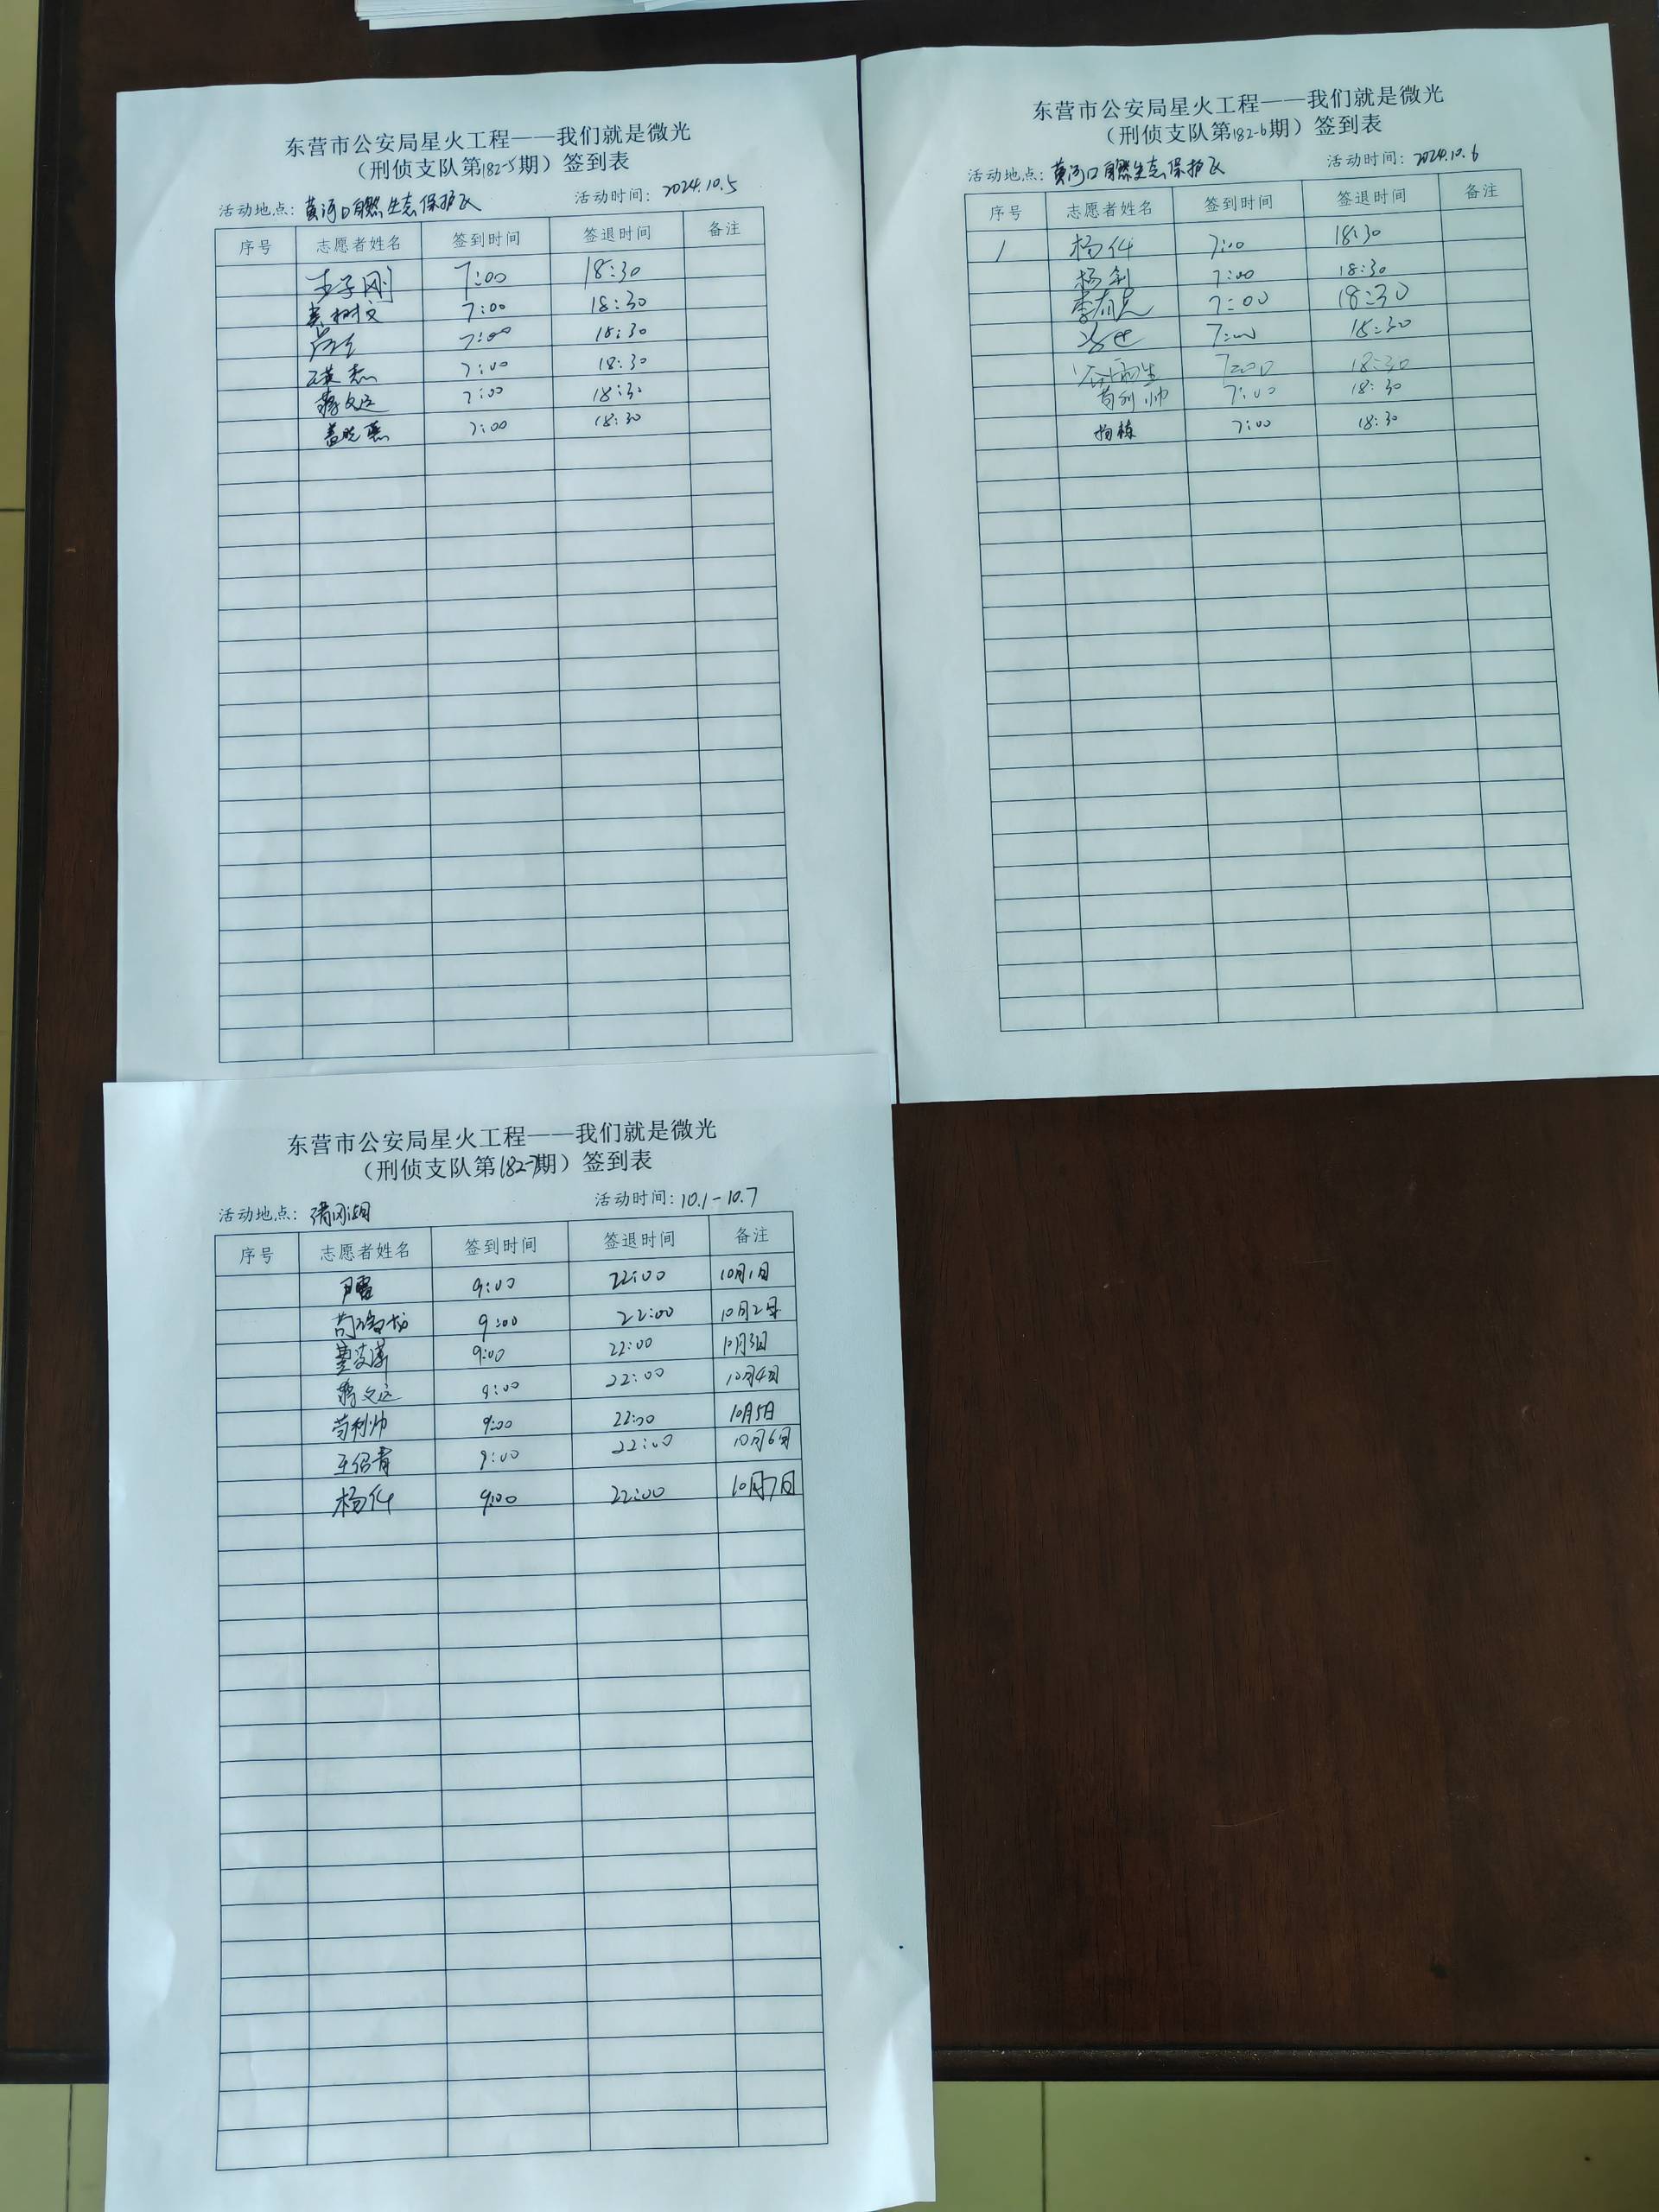 东营市公安局星火工程——我们就是微光
（刑侦支队第182-5期）签到表
活动地点：黄河口自然生态保护区 活动时间：2024.10.5
序号 志愿者姓名 签到时间 签退时间 备注
王子刚 7:00 18:30
树文 7:00 18:30
7:00 18:30
杰 7:00 18:30
蒋文远 7:00 18:30
盖晓燕 7:00 18:30
东营市公安局星火工程——我们就是微光
（刑侦支队第182-6期）签到表
活动地点：黄河口自然生态保护区 活动时间：2024.10.6
序号 志愿者姓名 签到时间 签退时间 备注
1 杨 7:00 18:30
杨剑 7:00 18:30
李 7:00 18:30
7:00 18:30
7:00 18:30
苟利帅 7:00 18:30
杨栋 7:00 18:30
东营市公安局星火工程——我们就是微光
（刑侦支队第182-7期）签到表
活动地点：清风湖 活动时间：10.1-10.7
序号 志愿者姓名 签到时间 签退时间 备注
9:00 22:00 10月1日
9:00 22:00 10月2日
9:00 22:00 10月3日
蒋文远 9:00 22:00 10月4日
苟利帅 9:00 22:00 10月5日
王绍青 9:00 22:00 10月6日
杨 9:00 22:00 10月7日